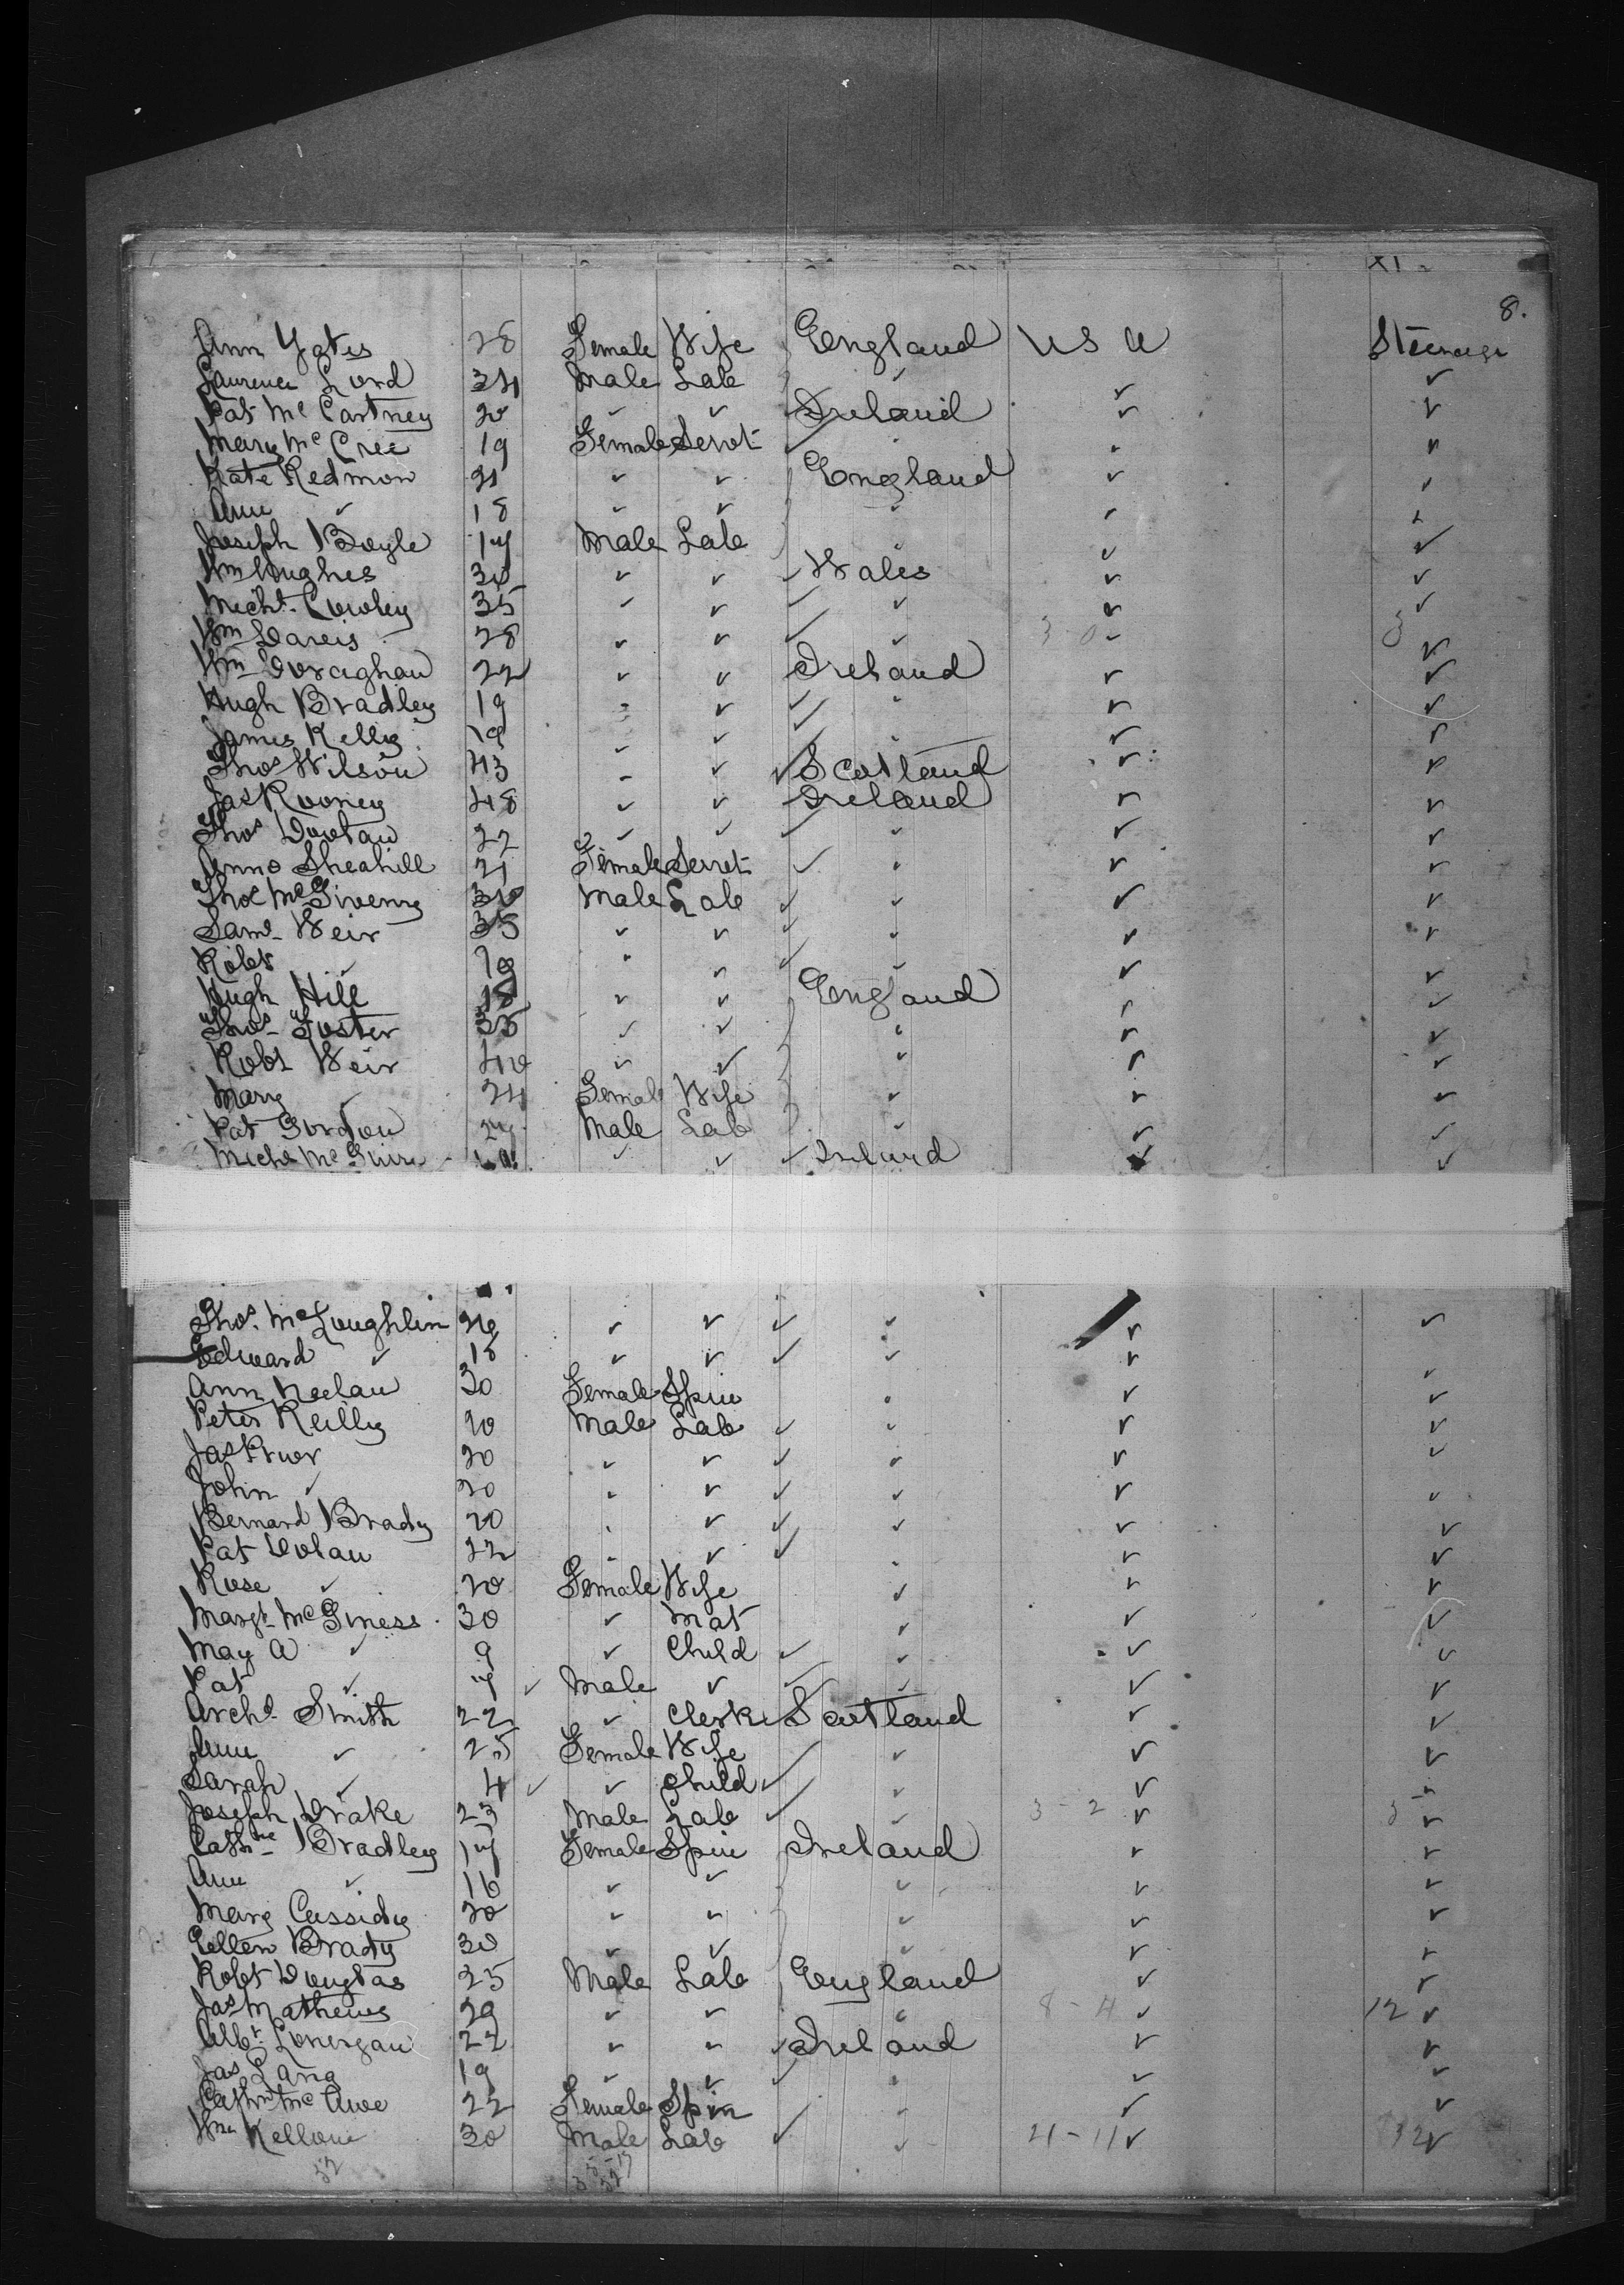 XI
8.
Ann Yates 28 Female Wife England U S A Steerage
Laurence Lord 34 Male Lab ✓ ✓ ✓
Pat McCartney 20 ✓ ✓ Ireland ✓ ✓
Mary McCree 19 Female Servt ✓ ✓ ✓
Kate Redmon 21 ✓ ✓ England ✓ ✓
Ann ✓ 18 ✓ ✓ ✓ ✓ ✓
Joseph Boyle 17 Male Lab ✓ ✓ ✓
Wm Hughes 30 ✓ ✓ Wales ✓ ✓
Michl Cowley 35 ✓ ✓ ✓ ✓ ✓
Wm Davis 28 ✓ ✓ ✓ 3-0 ✓ 3 ✓
Wm Doraghau 22 ✓ ✓ Ireland ✓ ✓
Hugh Bradley 19 ✓ ✓ ✓ ✓ ✓
James Kelly 19 ✓ ✓ ✓ ✓ ✓
Thos Wilson 43 ✓ ✓ Scotland ✓ ✓
Jas Rooney 48 ✓ ✓ Ireland ✓ ✓
Thos 22 ✓ ✓ ✓ ✓ ✓
Anne Sheahill 21 Female Servt ✓ ✓ ✓
Thos McGiveny 30 Male Lab ✓ ✓ ✓
Saml Weir 35 ✓ ✓ ✓ ✓ ✓
Robt ✓ ✓ ✓ ✓ ✓ ✓
Hugh Hill 18 ✓ ✓ England ✓ ✓
Thos Foster 35 ✓ ✓ ✓ ✓ ✓
Robt Weir 40 ✓ ✓ ✓ ✓ ✓
Mary ✓ 24 Female Wife ✓ ✓ ✓
Pat Gordon 27 Male Lab ✓ ✓ ✓
Michl McGuire ✓ ✓ Ireland ✓ ✓
Thos. McLoughlin 26 ✓ ✓ ✓ ✓ ✓
Edward ✓ 18 ✓ ✓ ✓ ✓ ✓
Ann Neelan 30 Female Spin ✓ ✓ ✓
Peter Reilly 20 Male Lab ✓ ✓ ✓
Jas Prior 20 ✓ ✓ ✓ ✓ ✓
John ✓ 20 ✓ ✓ ✓ ✓ ✓
Bernard Brady 20 ✓ ✓ ✓ ✓ ✓
Pat Dolan 22 ✓ ✓ ✓ ✓ ✓
Rose ✓ 20 Female Wife ✓ ✓ ✓
Margt McGiness 30 ✓ Mat ✓ ✓ ✓
May A ✓ 9 ✓ Child ✓ ✓ ✓
Pat ✓ 7 Male ✓ ✓ ✓ ✓
Archd Smith 22 ✓ Clerk Scotland ✓ ✓
Ann ✓ 25 Female Wife ✓ ✓ ✓
Sarah ✓ 4 ✓ Child ✓ ✓ ✓
Joseph Drake 23 Male Lab ✓ 3-2 ✓ 5 ✓
Cathne Bradley 17 Female Spin Ireland ✓ ✓
Ann ✓ 16 ✓ ✓ ✓ ✓ ✓
Mary Cassidy 20 ✓ ✓ ✓ ✓ ✓
Ellen Brady 30 ✓ ✓ ✓ ✓ ✓
Robt Douglas 25 Male Lab England ✓ ✓
Jas Mathews 29 ✓ ✓ ✓ 8-4 ✓ 12 ✓
Albt Lonergan 22 ✓ ✓ Ireland ✓ ✓
Jas Lang 19 ✓ ✓ ✓ ✓ ✓
Cathn McAwe 22 Female Spin ✓ ✓ ✓
Wm 30 Male Lab ✓ 21-11 ✓ 32 ✓
52